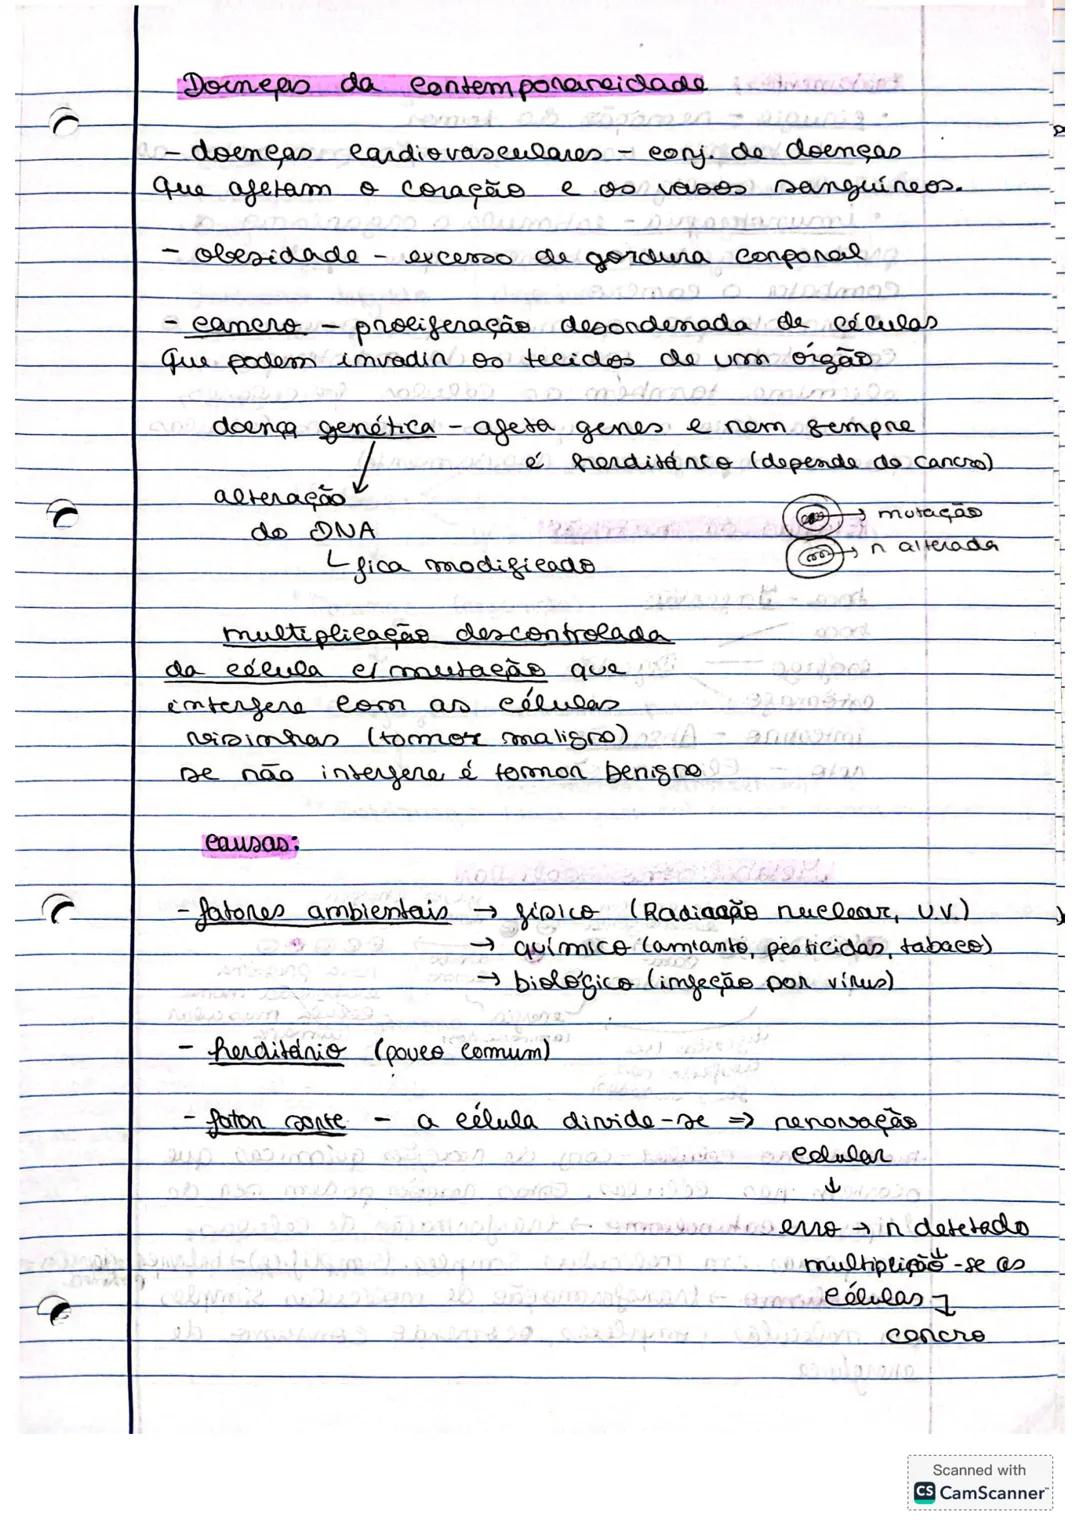 Doenças da contemporaneidade
- doenças cardiovasculares - conj. de doenças
que afetam o coração e os vasos sanguíneos.
- obesidade - excesso de gordura corporal
- cancro - proliferação desordenada de células
que podem invadir os tecidos de um órgão
doença genética - afeta genes e nem sempre
é herditário (depende do cancro)
alteração
do DNA
fica modificado
→ mutação
→ n alterada
multiplicação descontrolada
da célula c/ mutação que
interfere com as células
visinhas (tomor maligno)
se não interfere é tomor benigno
causas:
- fatores ambientais → físico (Radiação nuclear, U.V.)
→ químico (amianto, pesticidas, tabaco)
→ biológico (infeção por vírus)
- herditário (pouco comum)
- fator sorte - a célula divide-se => renovação
celular
↓
erro → n detetado
↓
multiplição-se as
células
concro
Scanned with
CS CamScanner